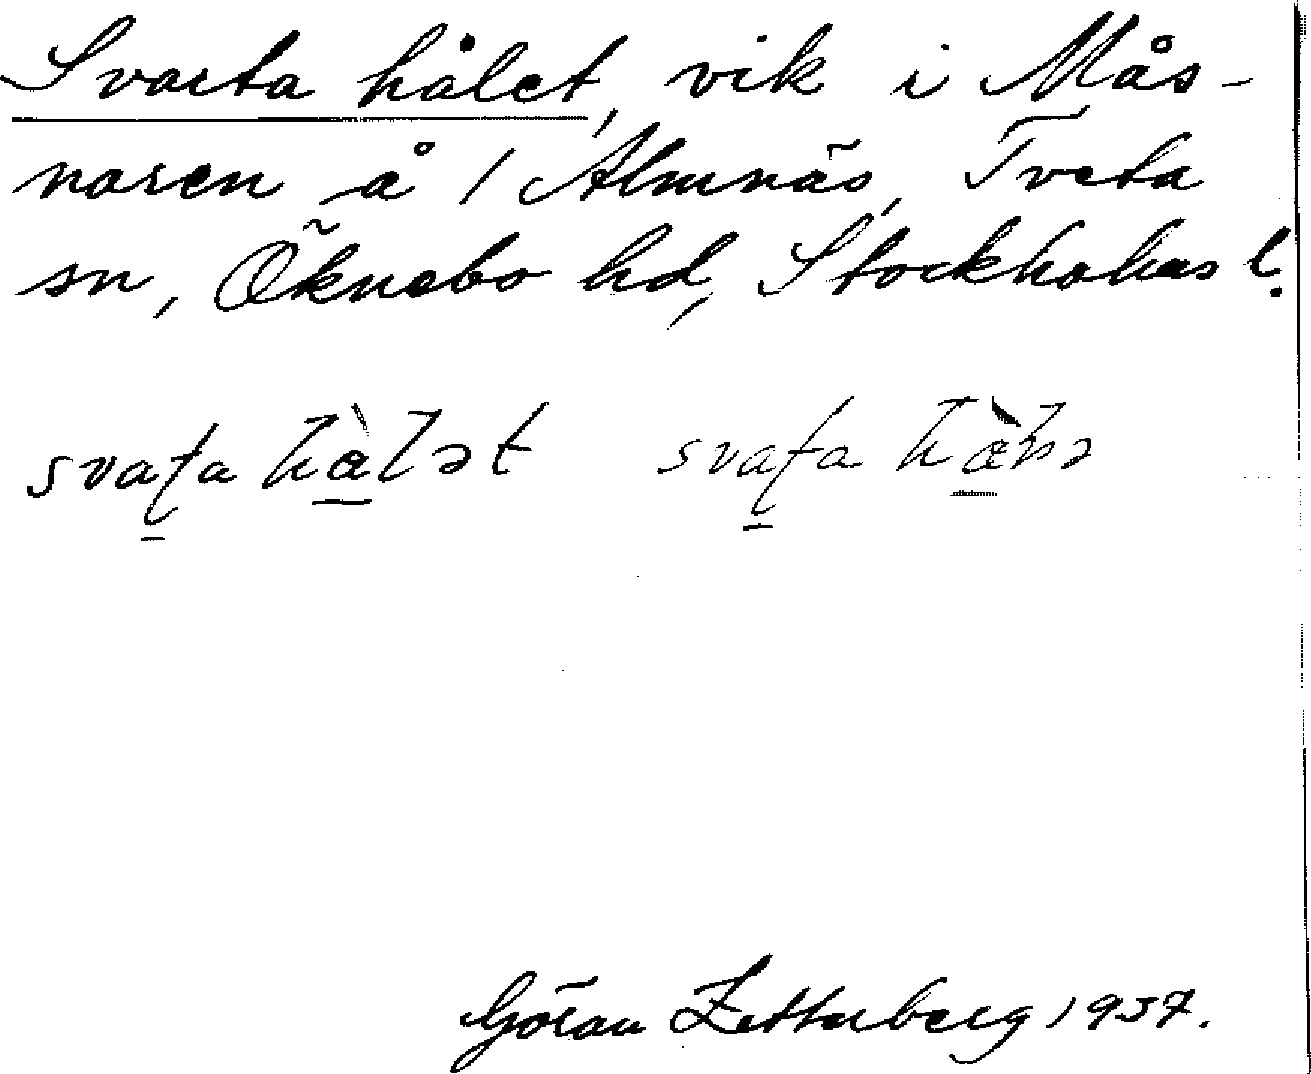 Svarta hålet, vik i Mås-
naren å 1 Almnäs, Tveta
sn, Öknebo hd, Stockholms l.
svaʈa hàlət svaʈa
Göran Zetterberg 1937.